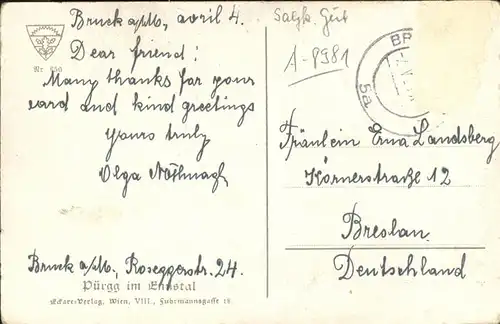 Bruck a/M., avril 4.
Dear friend!
Many thanks for your
card and kind greetings
Yours truly
Olga Nothnagl
Bruck a/M., Roseggerstr. 24.
Pürgg im Ennstal
Eckart-Verlag, Wien, VIII., Fuhrmannsgasse 18
Nr. 650
Salzk. Gut
A-8981
BR
5a
Fräulein Erna Landsberg
Körnerstraße 12
Breslau
Deutschland